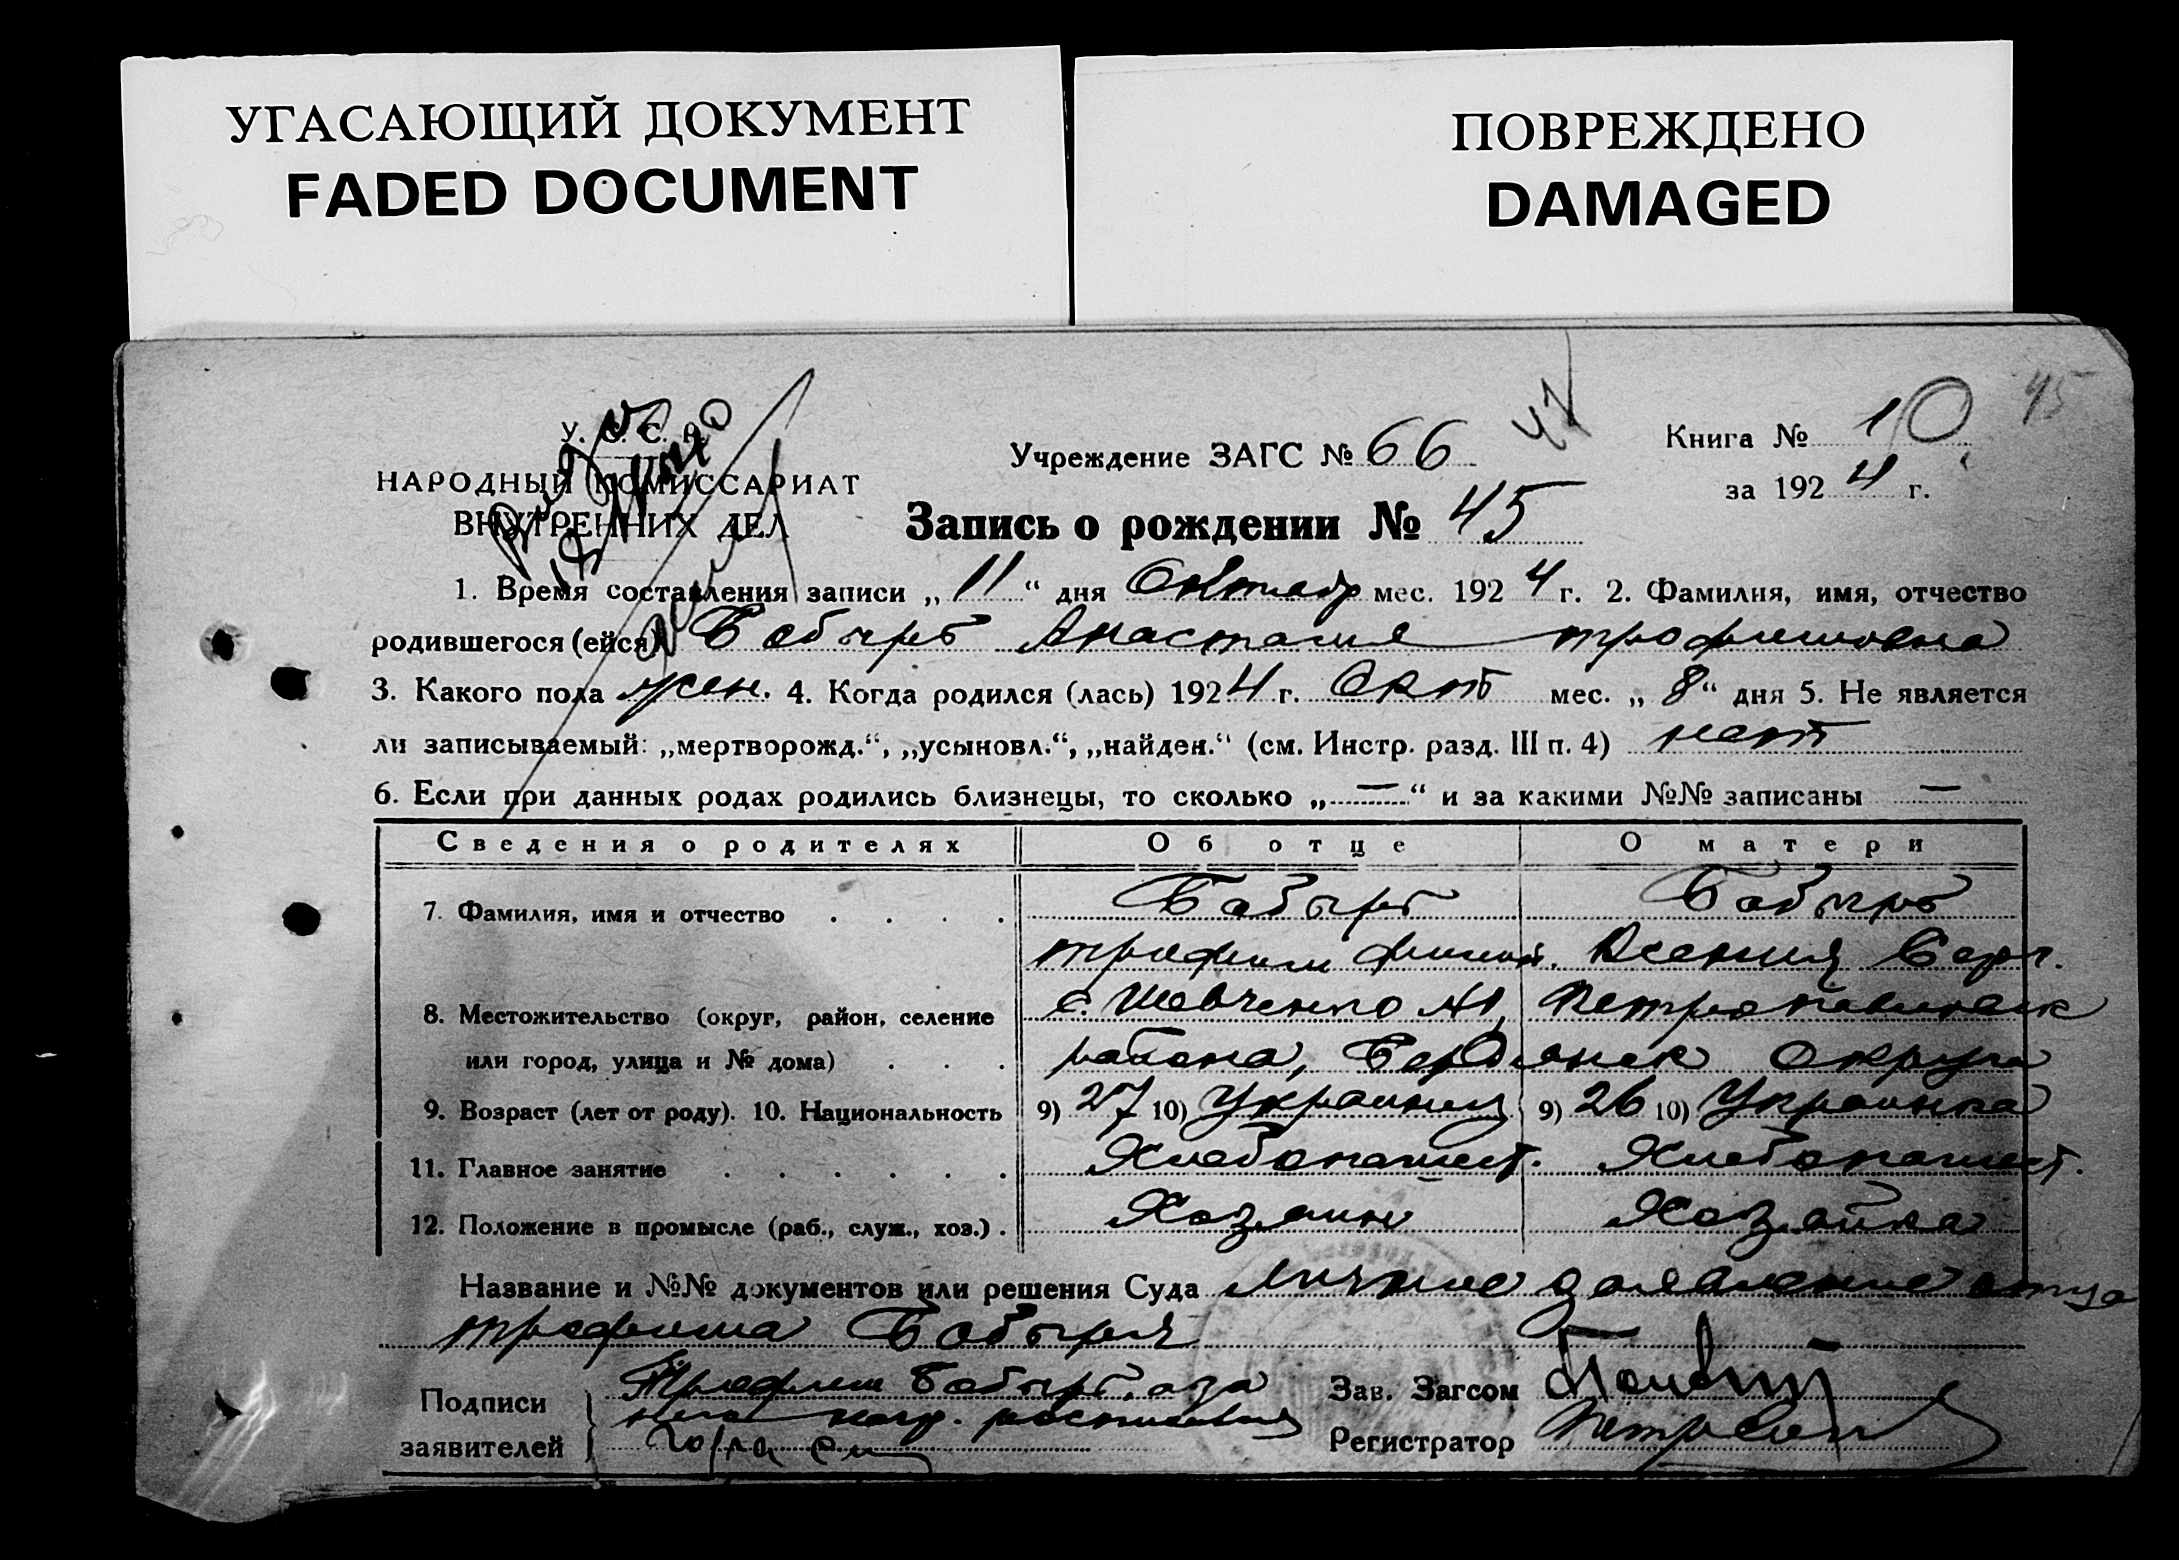 УГАСАЮЩИЙ ДОКУМЕНТ
FADED DOCUMENT
ПОВРЕЖДЕНО
DAMAGED
45
У. С. С. Р.
НАРОДНЫЙ КОМИССАРИАТ
ВНУТРЕННИХ ДЕЛ
Учреждение ЗАГС № 66
Книга № 10
за 1924 г.
Запись о рождении № 45
1. Время составления записи „11“ дня Октябр мес. 1924 г. 2. Фамилия, имя, отчество
родившегося (ейся) Бобырь Анастасия Трофимовна
3. Какого пола жен. 4. Когда родился (лась) 1924 г. Окт мес. „8“ дня 5. Не является
ли записываемый: „мертворожд.“, „усыновл.“, „найден.“ (см. Инстр. разд. III п. 4) нет
6. Если при данных родах родились близнецы, то сколько „—“ и за какими №№ записаны —
Сведения о родителях Об отце О матери
7. Фамилия, имя и отчество . . . . Бобырь Бобырь
Трофим Ксения Серг.
8. Местожительство (округ, район, селение с. Шевченко №1,
или город, улица и № дома) . . . района, Бердянск округи
9. Возраст (лет от роду). 10. Национальность 9) 27 10) Украинец 9) 26 10) Украинка
11. Главное занятие . . . . . . Хлебопашест. Хлебопашест.
12. Положение в промысле (раб., служ., хоз.) . Хозяин Хозяйка
Название и №№ документов или решения Суда Личное заявление отца
Трофима Бобыря
Подписи Трофим Бобырь, а за
заявителей него негр. росписався
Зав. Загсом
Регистратор